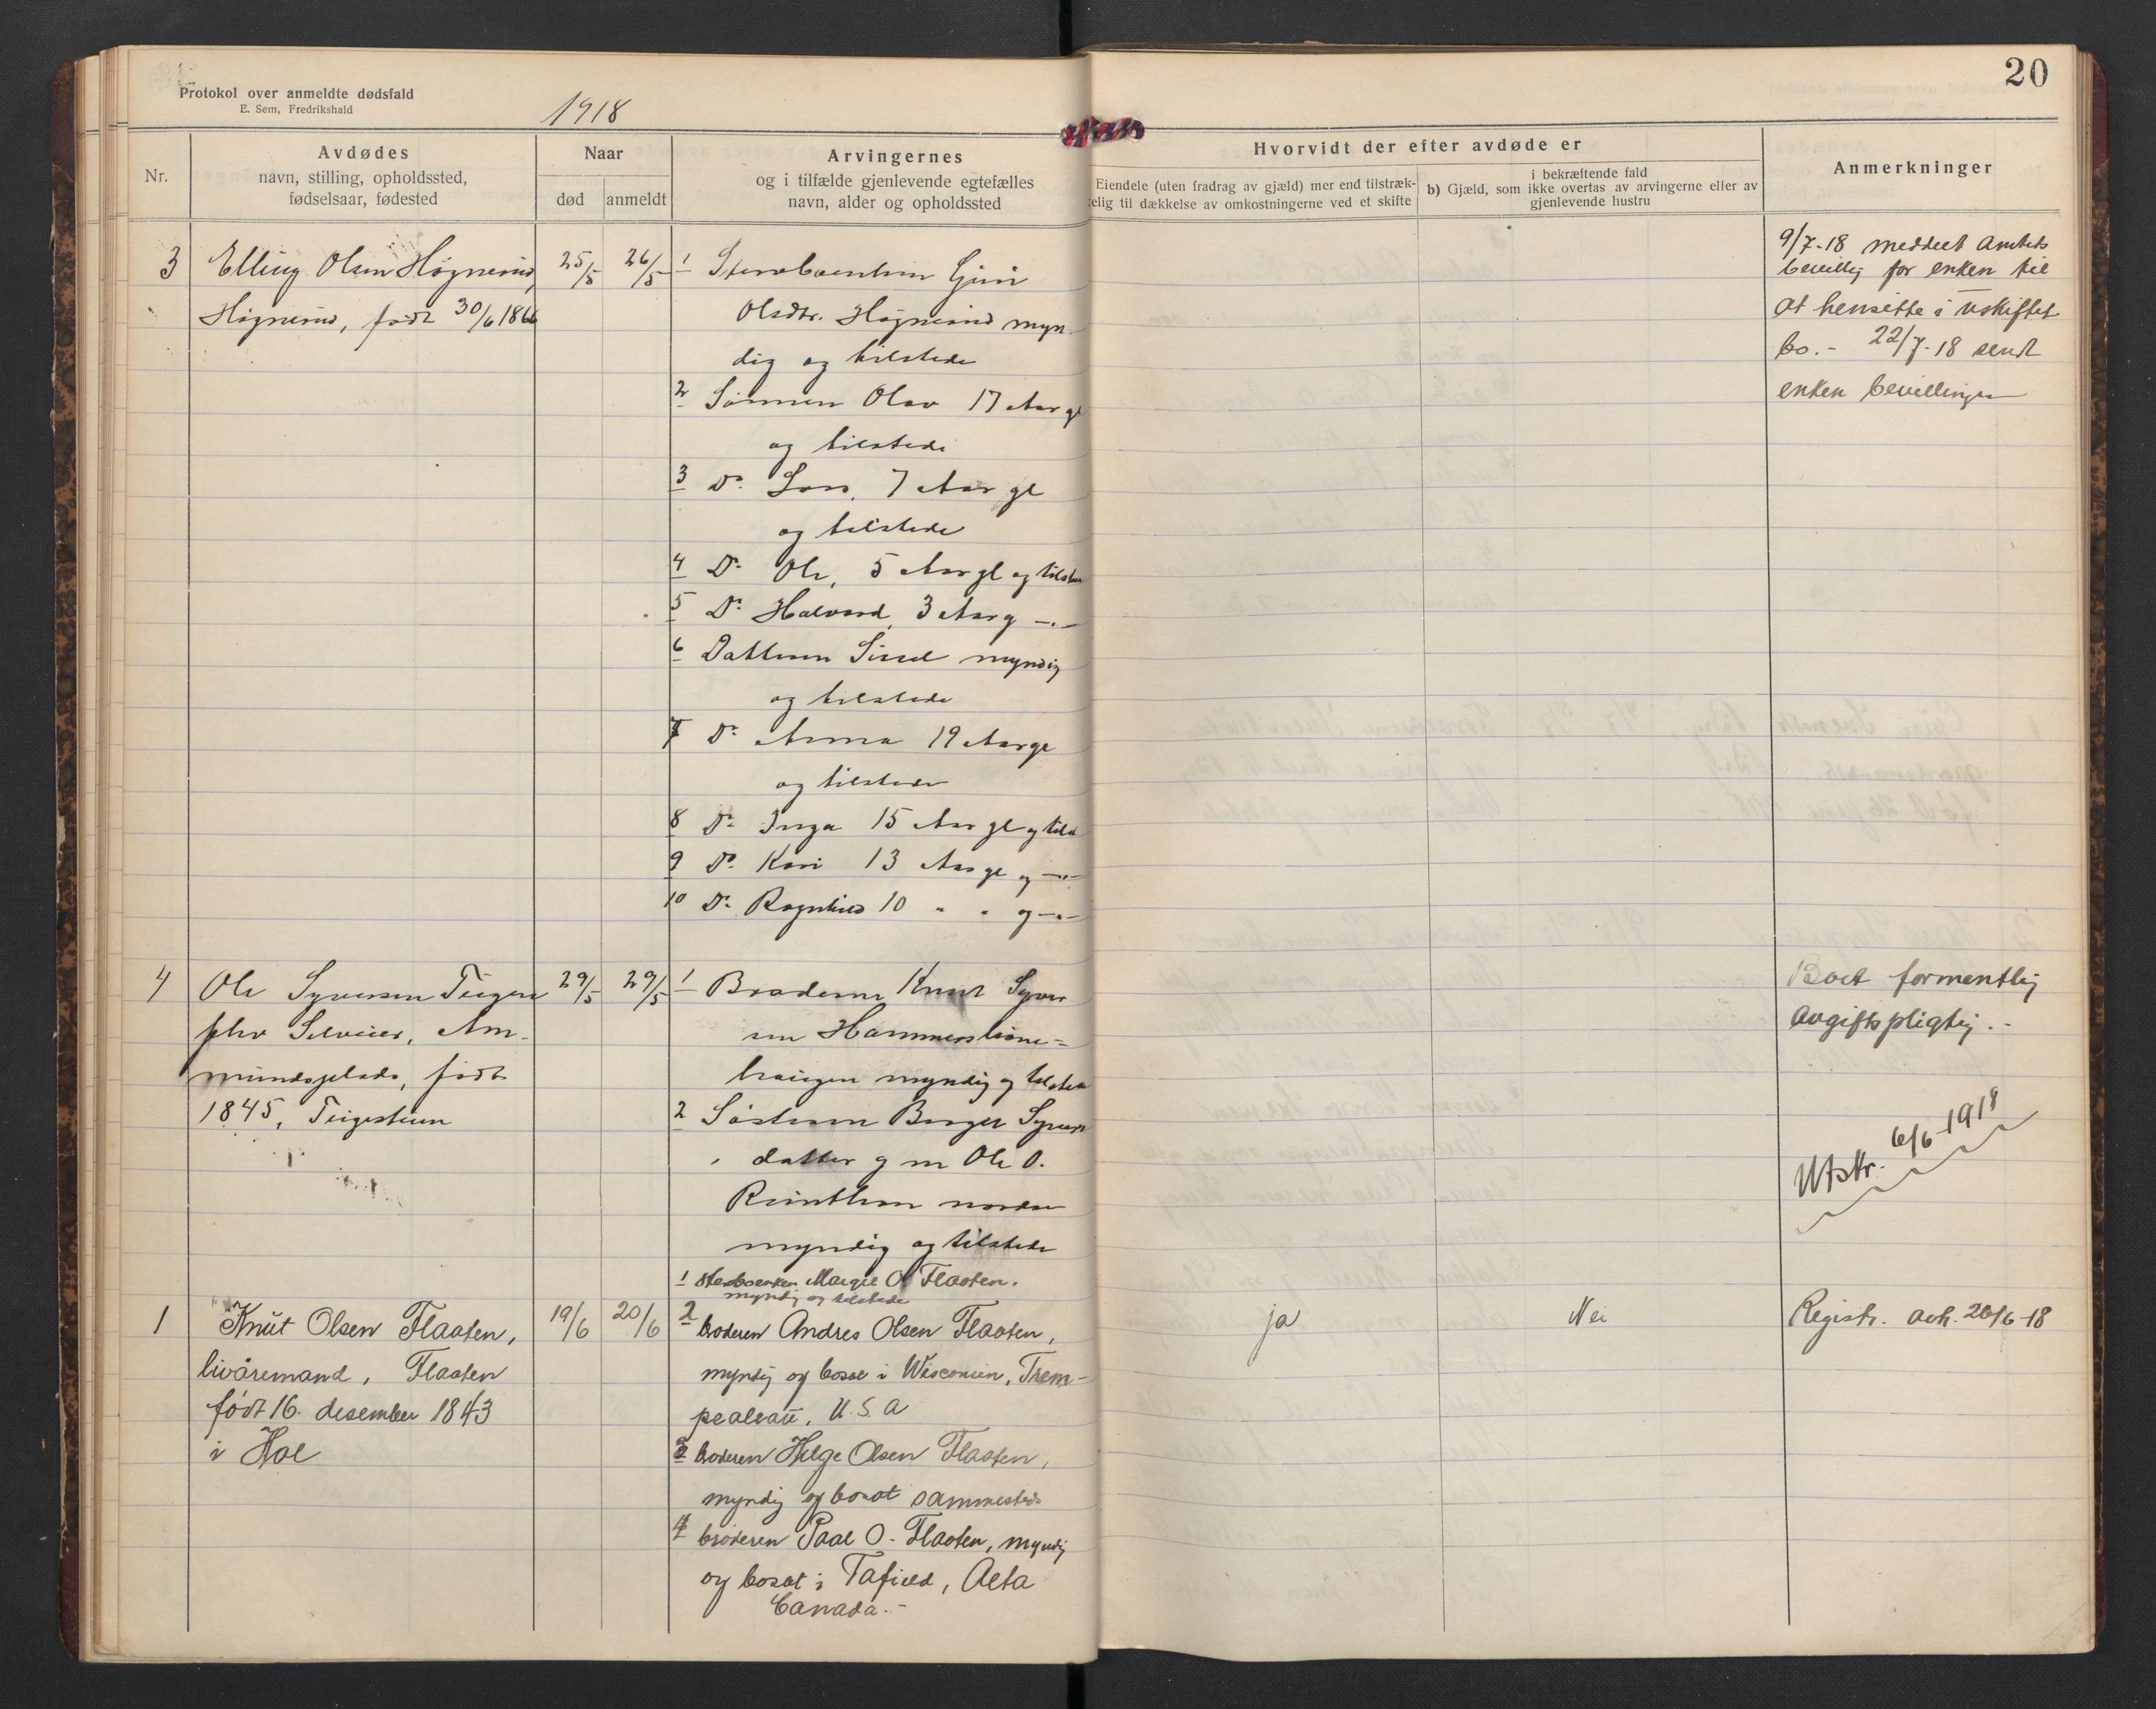 20
Protokol over anmeldte dødsfald
E. Sem, Fredrikshald
1918
Nr.
Avdødes
navn, stilling, opholdssted,
fødselsaar, fødested
Naar
død
anmeldt
Arvingernes
og i tilfælde gjenlevende egtefælles
navn, alder og opholdssted
Hvorvidt der efter avdøde er
Eiendele (uten fradrag av gjæld) mer end tilstræk-
elig til dækkelse av omkostningerne ved et skifte
i bekræftende fald
b) Gjæld, som ikke overtas av arvingerne eller av
gjenlevende hustru
Anmerkninger
3
Elling Olsen Høgnerud,
Høgnerud, født 30/6 1866
25/5
26/5
1 Guri
Olsdtr. Høgnerud myn-
dig og tilstede
2 Sønnen Olav 17 Aar gl
og tilstede
3 Do. Lars, 7 Aar gl
og tilstede
4 Do. Ole, 5 Aar gl og tilstede
5 Do. Halvord, 3 Aar g -"-
6 Datteren Sissel myndig
og tilstede
7 Do. Anna 19 Aar gl
og tilstede
8 Do. Inga 15 Aar gl og tilst
9 Do. Kari 13 Aar gl og -"-
10 Do. Ragnhild 10 " " og -"-
9/7-18 meddelt Amtets
bevillig for enken til
at hensitte i uskiftet
bo.- 22/7-18 sendt
enken bevillingen
4
Ole Syversen Teigen
født
1845, Teigestuen
29/5
29/5
1 Broderen Knut Syver
sen
myndig og tilstede
2 Søsteren Birgit Syvers
datter g m Ole O.
nordre
myndig og tilstede
Boet formentlig
avgiftspligtig.-
Utskr. 6/6-1918
1
Knut Olsen Flaaten,
livøremand, Flaaten
født 16. desember 1843
i Hol
19/6
20/6
1 Sterboenken Margit O Flaaten.
myndig og tilstede
2 broderen Andres Olsen Flaaten,
myndig og bosat i Wisconsin, Trem-
pealeau, U.S.A
3 broderen Helge Olsen Flaaten,
myndig og bosat sammesteds
4 broderen Paal O. Flaaten, myndig
og bosat i Tafield, Alta
Canada.-
ja
Nei
Registr. avh. 20/6-18